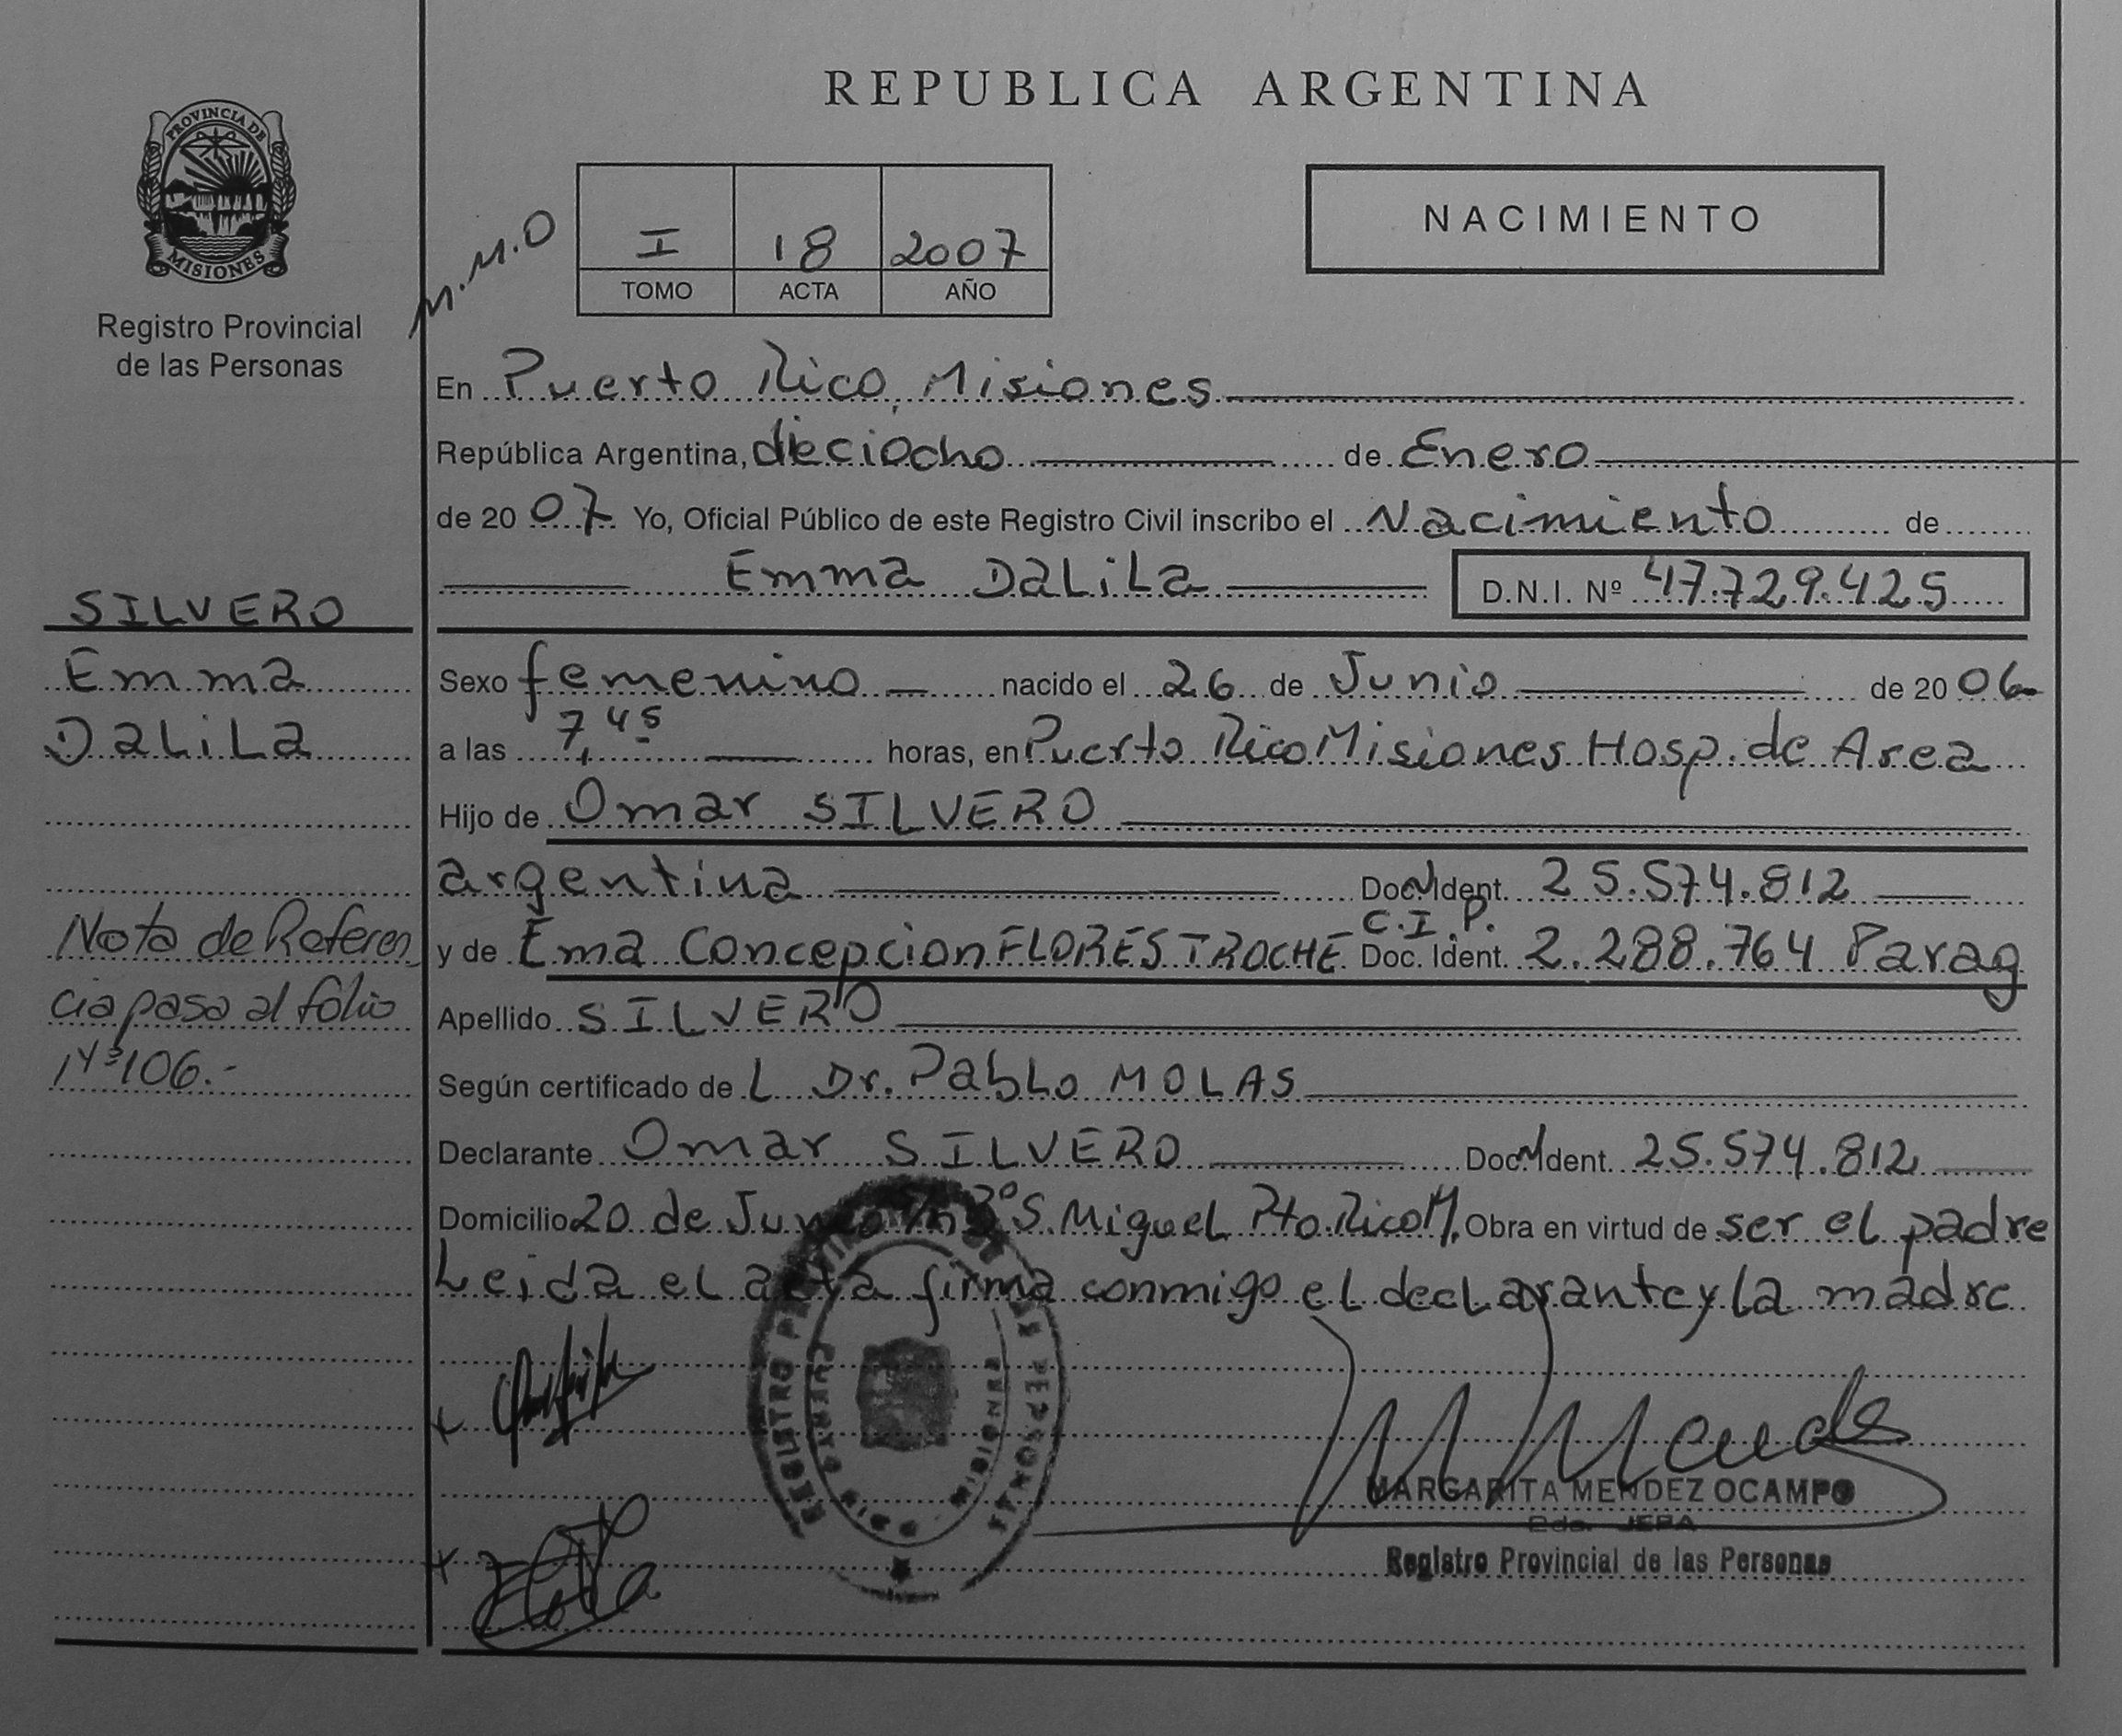 REPUBLICA ARGENTINA
PROVINCIA DE
MISIONES
Registro Provincial
de las Personas
M.M.O
I 18 2007
TOMO ACTA AÑO
NACIMIENTO
En Puerto Rico, Misiones
República Argentina, dieciocho de Enero
de 2007 Yo, Oficial Público de este Registro Civil inscribo el Nacimiento de
Emma DaLiLa D.N.I. Nº 47.729.425
SILVERO
Emma
DaLiLa
Nota de Referen
cia pasa al folio
Nº 106.-
Sexo femenino nacido el 26 de Junio de 2006
a las 7,45 horas, en Puerto Rico Misiones Hosp. de Area
Hijo de Omar SILVERO
argentina Doc. Ident. 25.574.812
C.I.P.
y de Ema Concepcion FLORES TROCHE Doc. Ident. 2.288.764 Parag
Apellido SILVERO
Según certificado de L Dr. PabLo MOLAS
Declarante Omar SILVERO Doc. Ident. 25.574.812
Domicilio 20 de Junio S. MigueL Pto. Rico M. Obra en virtud de ser el padre
Leida el acta firma conmigo el declarante y la madre
REGISTRO PROVINCIAL DE LAS PERSONAS
MARGARITA MENDEZ OCAMPO
Registro Provincial de las Personas